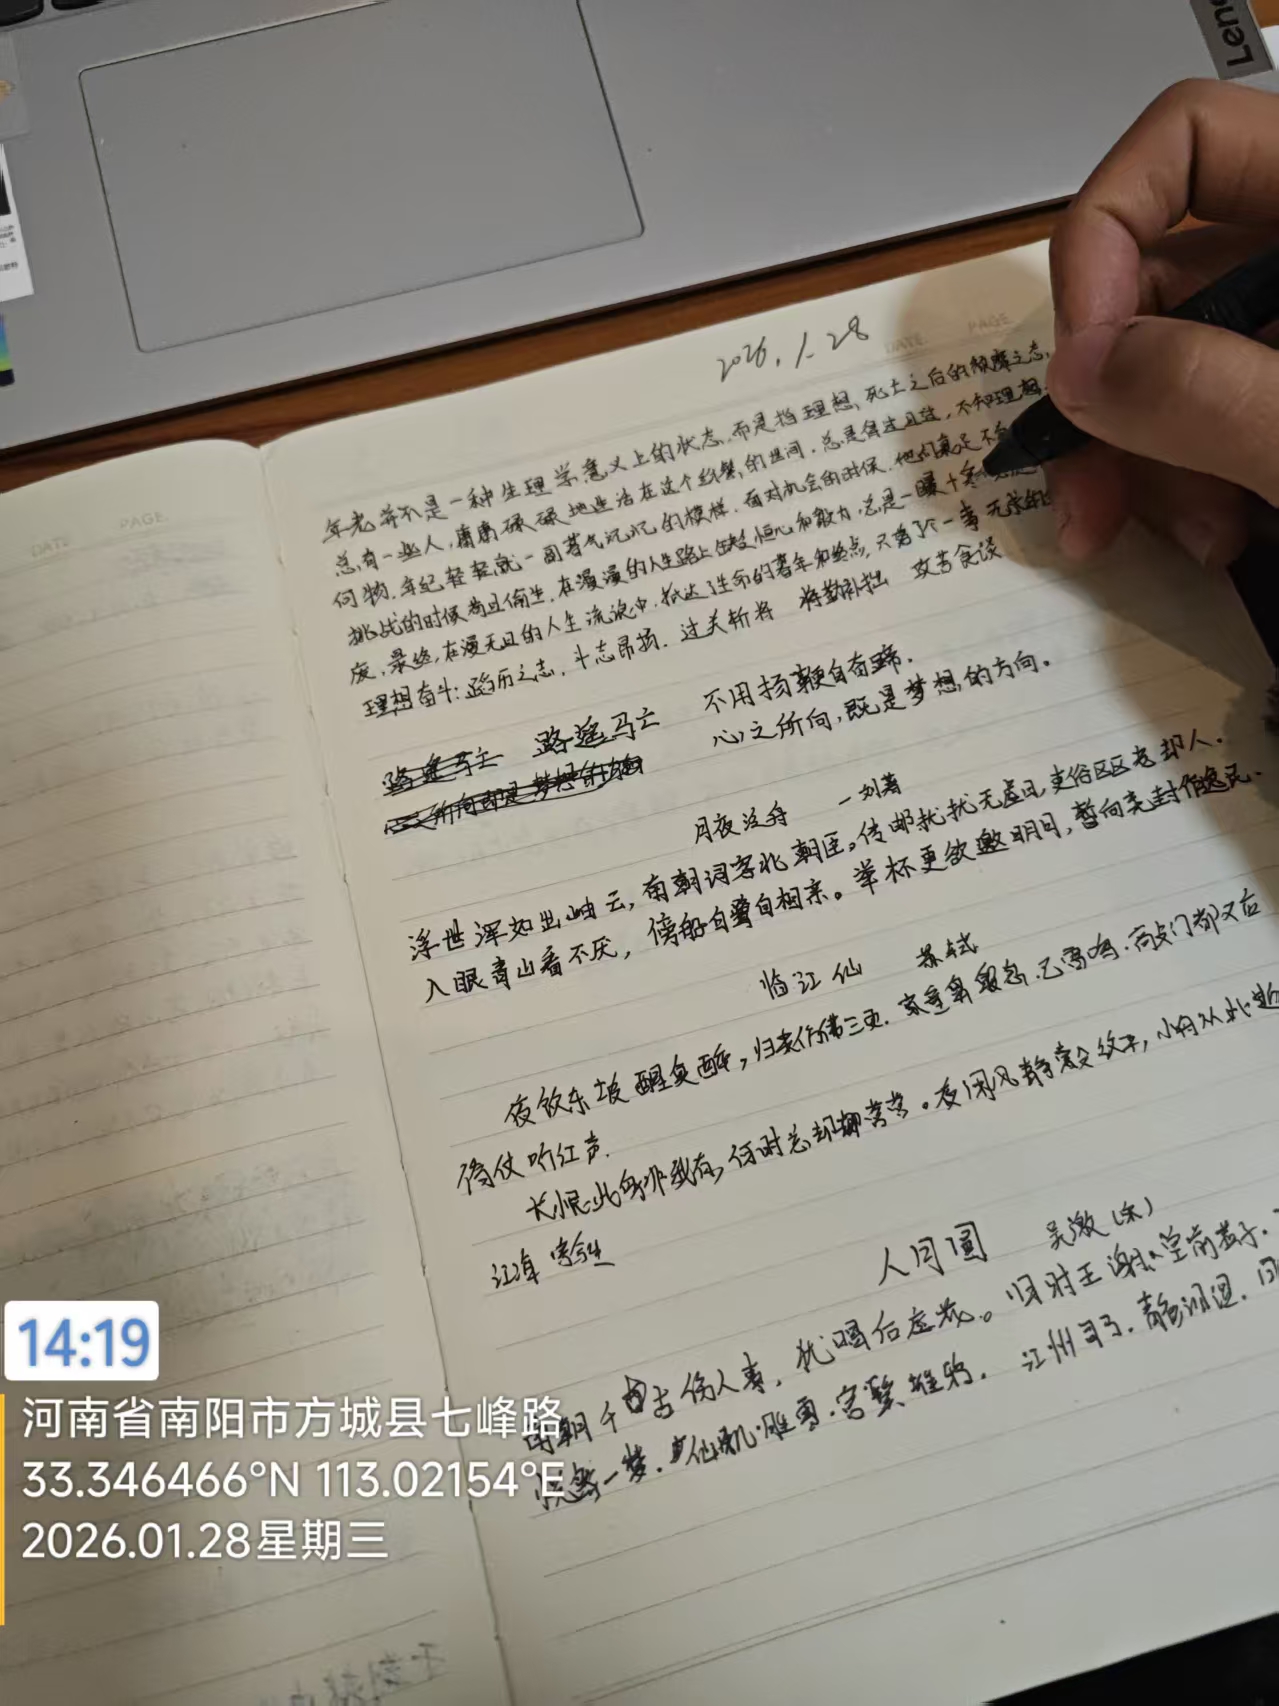 Leno
DATE PAGE
DATE PAGE
2026.1.28
年老并不是一种生理学意义上的状态,而是指理想,死亡之后的颓废之态,
总有一些人,庸庸碌碌地生活在这个纷繁的世间,总是得过且过,不知理想
何物,年纪轻轻就一副暮气沉沉的模样,面对机会的时候,他们裹足不
挑战的时候苟且偷生,在漫漫的人生路上缺乏恒心和毅力,总是一曝十寒
废,最终,在漫无目的人生流浪中,抵达了生命的暮年和终点,只为了个一事无成的
理想奋斗: 凌历之志,斗志昂扬,过关斩将 将勤补拙 攻苦食淡
路遥马亡 路遥马亡 不用扬鞭自奋蹄.
心之所向即是梦想的方向 心之所向,既是梦想的方向。
月夜泛舟 一刘著
浮世浑如出岫云,南朝词客北朝臣。传邮扰扰无虚日,吏俗区区老却人.
入眼青山看不厌,傍船白鹭自相亲。举杯更欲邀明月,暂向尧封作逸民.
临江仙 苏轼
夜饮东坡醒复醉,归来仿佛三更.家童鼻息已雷鸣.敲门都又后
倚仗听江声.
长恨此身非我有,何时忘却营营。夜阑风静縠纹平,小舟从此逝
江海寄余生
人月圆 吴激(宋)
南朝千古伤人事,犹唱后庭花。旧时王谢,堂前燕子,
恍然一梦,仙肌胜雪,宫鬓堆鸦,江州司马,青衫泪湿,同
14:19
河南省南阳市方城县七峰路
33.346466°N 113.02154°E
2026.01.28星期三